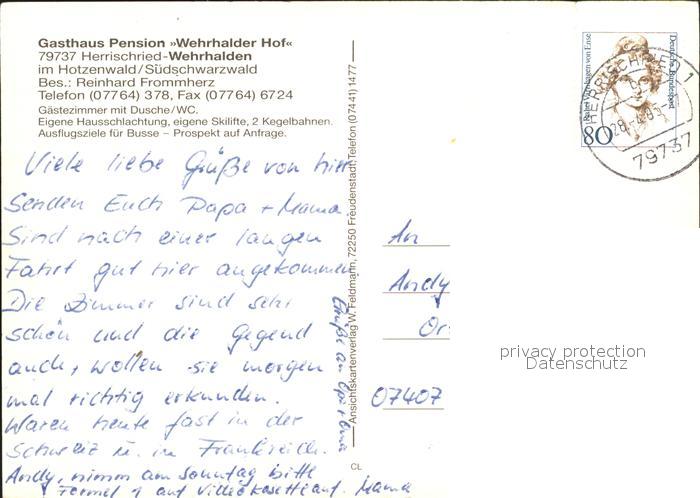 Gasthaus Pension »Wehrhalder Hof«
79737 Herrischried-Wehrhalden
im Hotzenwald/Südschwarzwald
Bes.: Reinhard Frommherz
Telefon (07764) 378, Fax (07764) 6724
Gästezimmer mit Dusche/WC.
Eigene Hausschlachtung, eigene Skilifte, 2 Kegelbahnen.
Ausflugsziele für Busse – Prospekt auf Anfrage.
Viele liebe Grüße von hier
Senden Euch Papa + Mama.
Sind nach einer langen
Fahrt gut hier angekommen
Die Zimmer sind sehr
schön und die Gegend
auch, wollen sie morgen
mal richtig erkunden.
Waren heute fast in der
Schweiz u. in Frankreich.
Andy, nimm am Sonntag bitte
Formel 1 auf Videokassette auf. Mama
Grüße an Opi + Oma
Ansichtskartenverlag W. Feldmann, 72250 Freudenstadt, Telefon (07441) 1477
CL
Deutsche Bundespost
Rahel Varnhagen von Ense
80
HERRISCHRIED 1
79737
An
Andy
Or
07407
privacy protection
Datenschutz